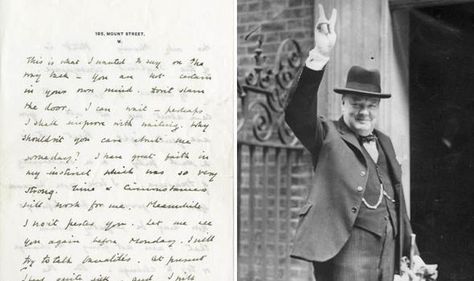 105, MOUNT STREET,
W.
This is what I wanted to say on the
way back - you are not certain
in your own mind. Don't slam
the door. I can wait - perhaps
I shall improve with waiting. Why
shouldn't you care about me
someday? I have great faith in
my instinct which was so very
strong. Time & Circumstances
will work for me. Meanwhile
I won't pester you. Let me see
you again before Monday. I will
try to talk banalities. At present
I feel quite sick - and I will